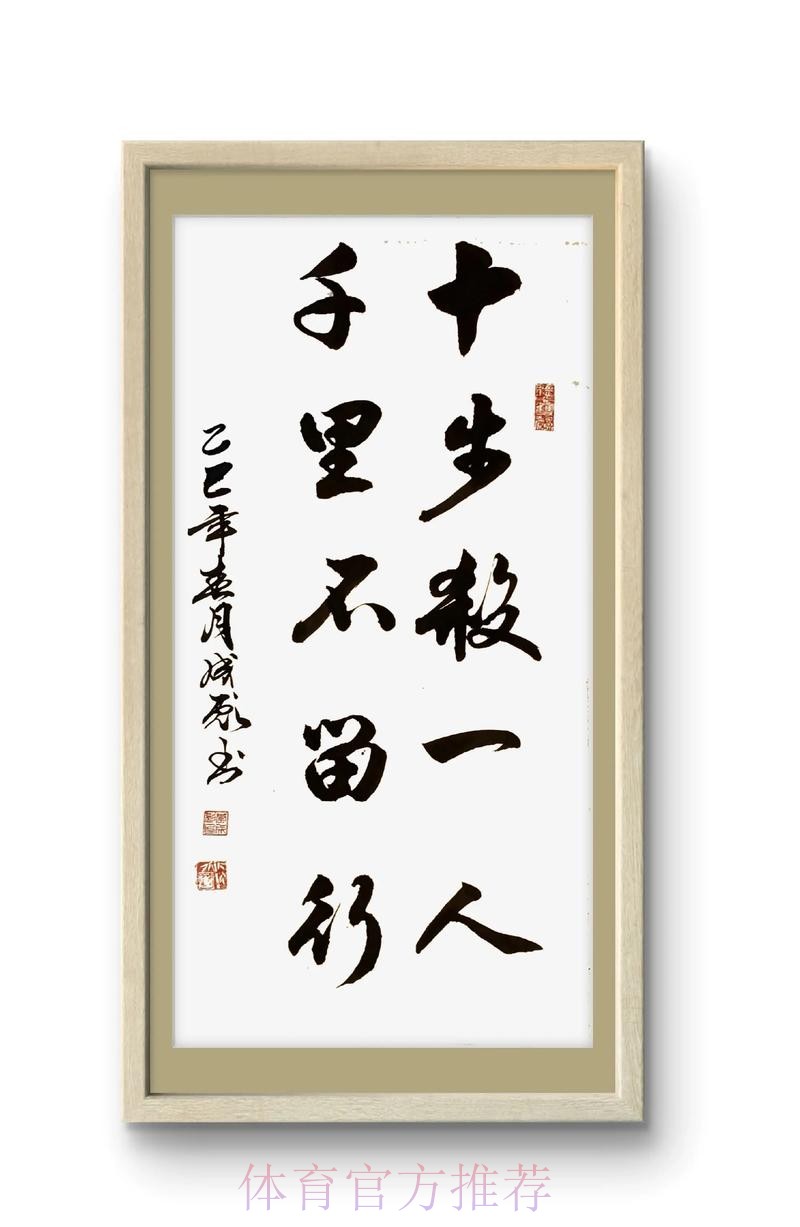 十步殺一人
千里不留行
乙巳年春月成願书
体育官方推荐